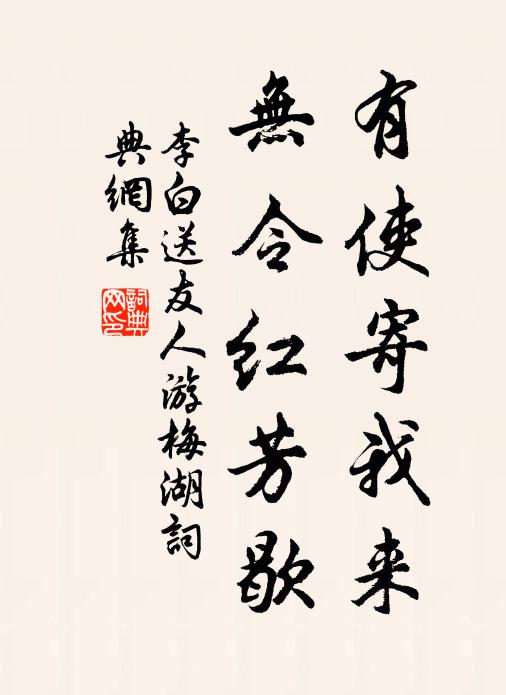 有使寄我来
無令红芳歇
李白送友人游梅湖詞
典網集
詞典網印